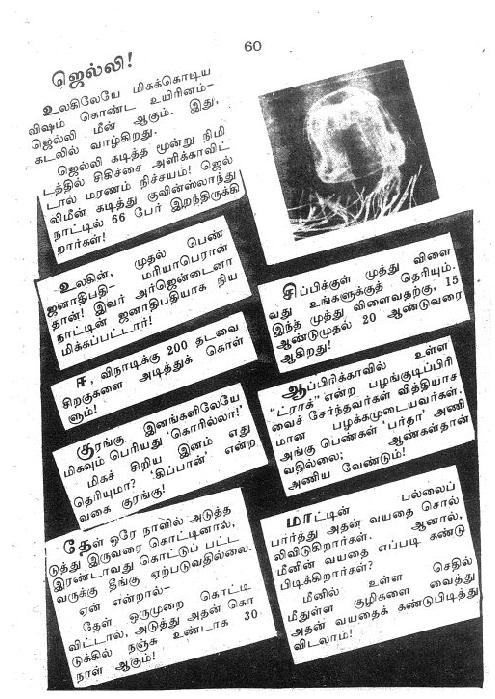 60
ஜெல்லி!
உலகிலேயே மிகக்கொடிய
விஷம் கொண்ட உயிரினம்–
ஜெல்லி மீன் ஆகும். இது,
கடலில் வாழ்கிறது.
ஜெல்லி கடித்த மூன்று நிமி
டத்தில் சிகிச்சை அளிக்காவிட்
டால் மரணம் நிச்சயம்! ஜெல்
லிமீன் கடித்து குவின்ஸ்லாந்து
நாட்டில் 66 பேர் இறந்திருக்கி
றார்கள்!
உலகின், முதல் பெண்
ஜனாதிபதி– மரியாபெரான்
தான்! இவர் அர்ஜென்டைனா
நாட்டின் ஜனாதிபதியாக நிய
மிக்கப்பட்டார்!
ஈ, விநாடிக்கு 200 தடவை
சிறகுகளை அடித்துக் கொள்
ளும்!
குரங்கு இனங்களிலேயே
மிகவும் பெரியது கொரில்லா!
மிகச் சிறிய இனம் எது
தெரியுமா? 'கிப்பான்' என்ற
வகை குரங்கு!
தேள் ஒரே நாளில் அடுத்த
டுத்து இருவரை கொட்டினால்,
இரண்டாவது கொட்டுப் பட்ட
வருக்கு தீங்கு ஏற்படுவதில்லை.
ஏன் என்றால்–
தேள் ஒருமுறை கொட்டி
விட்டால், அடுத்து அதன் கொ
டுக்கில் நஞ்சு உண்டாக 30
நாள் ஆகும்!
சிப்பிக்குள் முத்து விளை
வது உங்களுக்குத் தெரியும்.
இந்த முத்து விளைவதற்கு, 15
ஆண்டுமுதல் 20 ஆண்டுவரை
ஆகிறது!
ஆப்பிரிக்காவில் உள்ள
"ட்ராக்" என்ற பழங்குடிப்பிரி
வைச் சேர்ந்தவர்கள் வித்தியாச
மான பழக்கமுடையவர்கள்.
அங்கு பெண்கள் 'பர்தா' அணி
வதில்லை; ஆண்கள்தான்
அணிய வேண்டும்!
மாட்டின் பல்லைப்
பார்த்து அதன் வயதை சொல்
லிவிடுகிறார்கள். ஆனால்,
மீனின் வயதை எப்படி கண்டு
பிடிக்கிறார்கள்?
மீனில் உள்ள செதில்
மீதுள்ள குழிகளை வைத்து
அதன் வயதைக் கண்டுபிடித்து
விடலாம்!